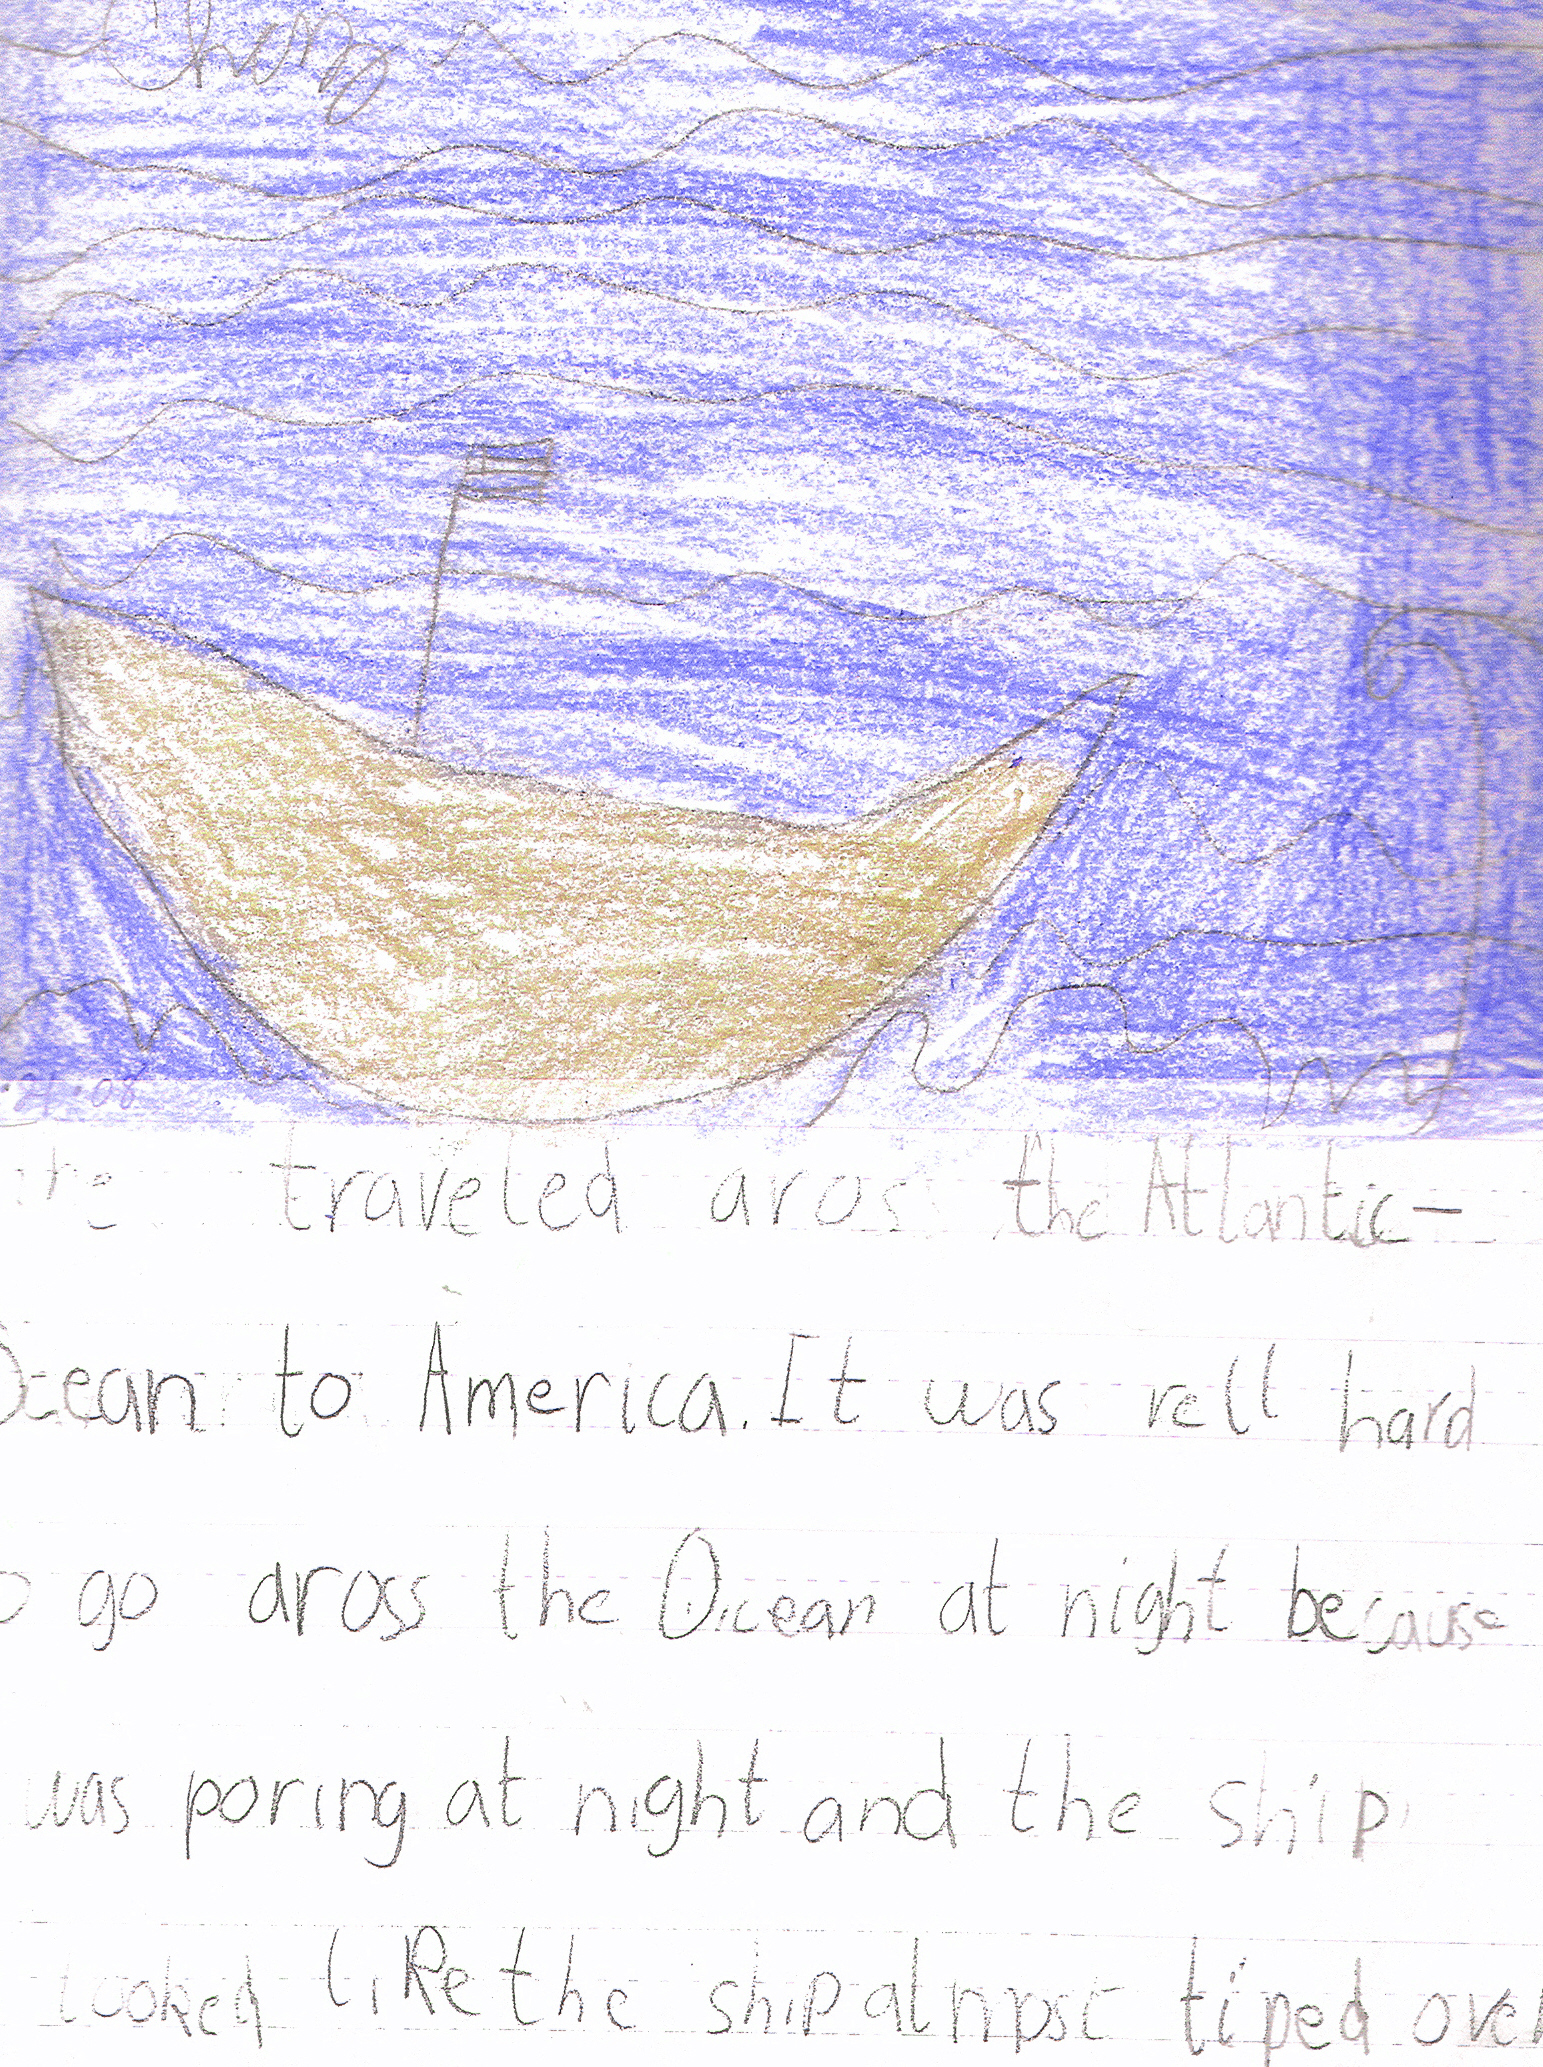 Chazz
traveled aross the Atlantic-
Ocean to America. It was rell hard
go aross the Ocean at night because
was poring at night and the ship
looked like the ship almost tiped over